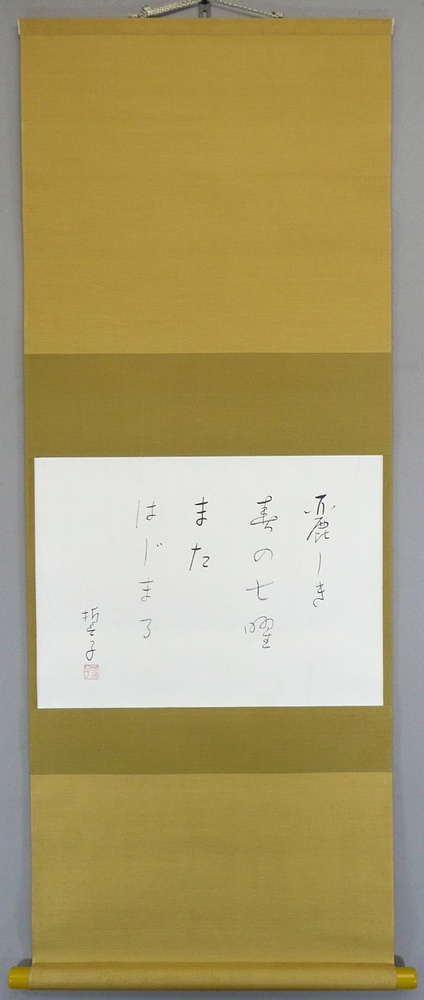 麗しき
春の七曜
また
はじまる
誓子